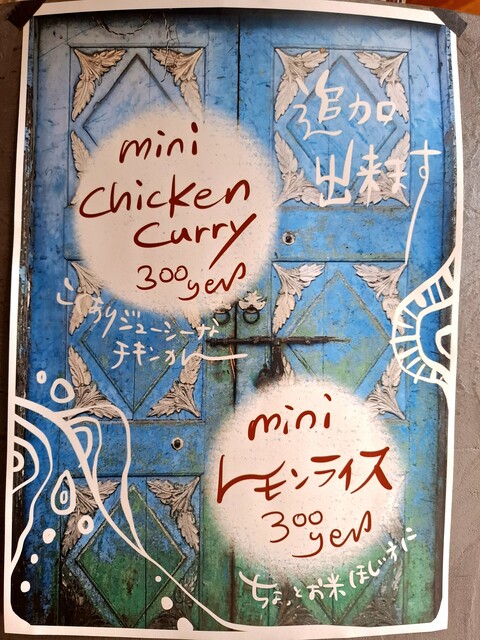 追加
出来ます
mini
Chicken
Curry
300yen
ジューシーな
チキンカレー
mini
レモンライス
300
yen
ちょっとお米ほしい方に